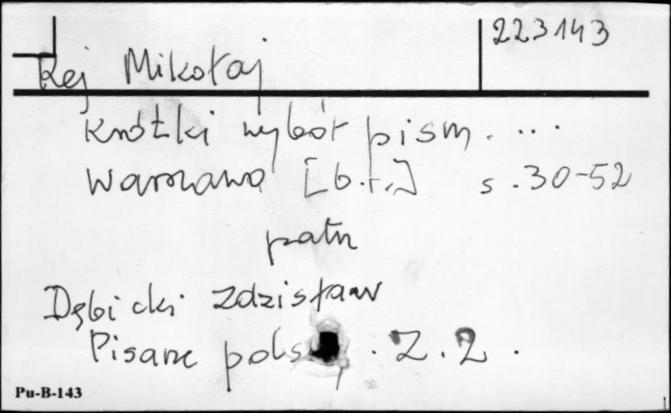 223143
Rej Mikołaj
Krótki wybór pism. ...
Warszawa [b.r.] s. 30-52
patrz
Dębicki Zdzisław
Pisarze . Z. 2 .
Pu-B-143